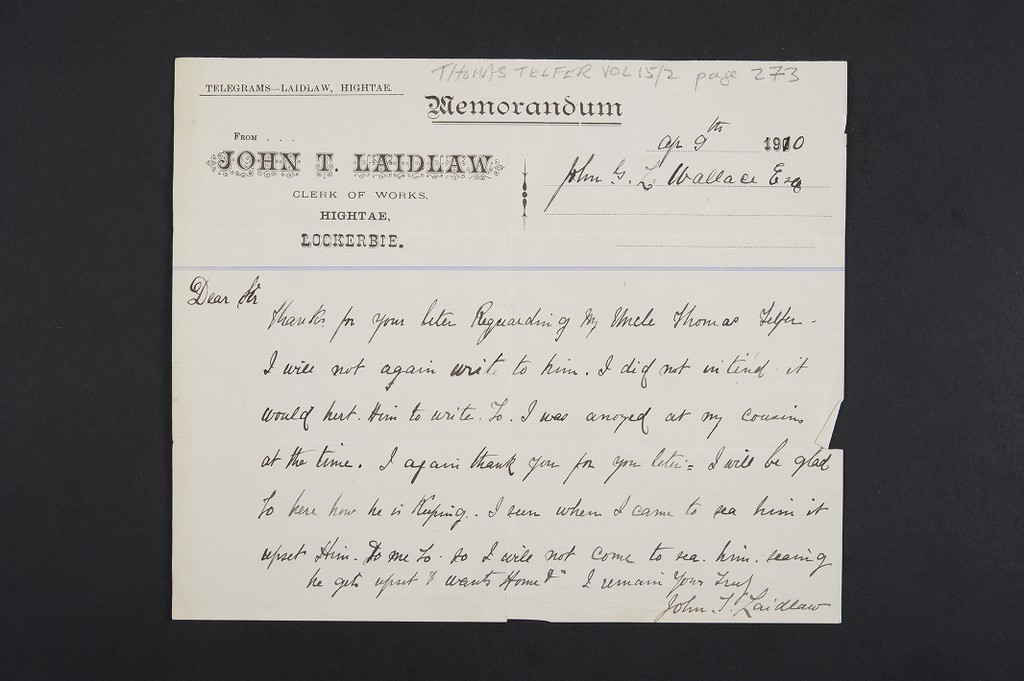 THOMAS TELFER VOL 15/2 page 273
TELEGRAMS—LAIDLAW, HIGHTAE.
Memorandum
FROM . . .
Ap 9th 1910
JOHN T. LAIDLAW
John G. L. Wallace Esq
CLERK OF WORKS,
HIGHTAE,
LOCKERBIE.
Dear Sir
Thanks for your leter Reguarding My Uncle Thomas Telfer -
I will not again writ to him. I did not intend it
would hurt. Him to write. So. I was anoyed at my cousins
at the time. I again thank you for you leter = I will be glad
to here how he is Keeping. I seen when I came to sea him it
upset Him. So me to. so I will not come to sea. him. seaing
he gets upset & wants Home &" I remain Your Truly
John. T. Laidlaw